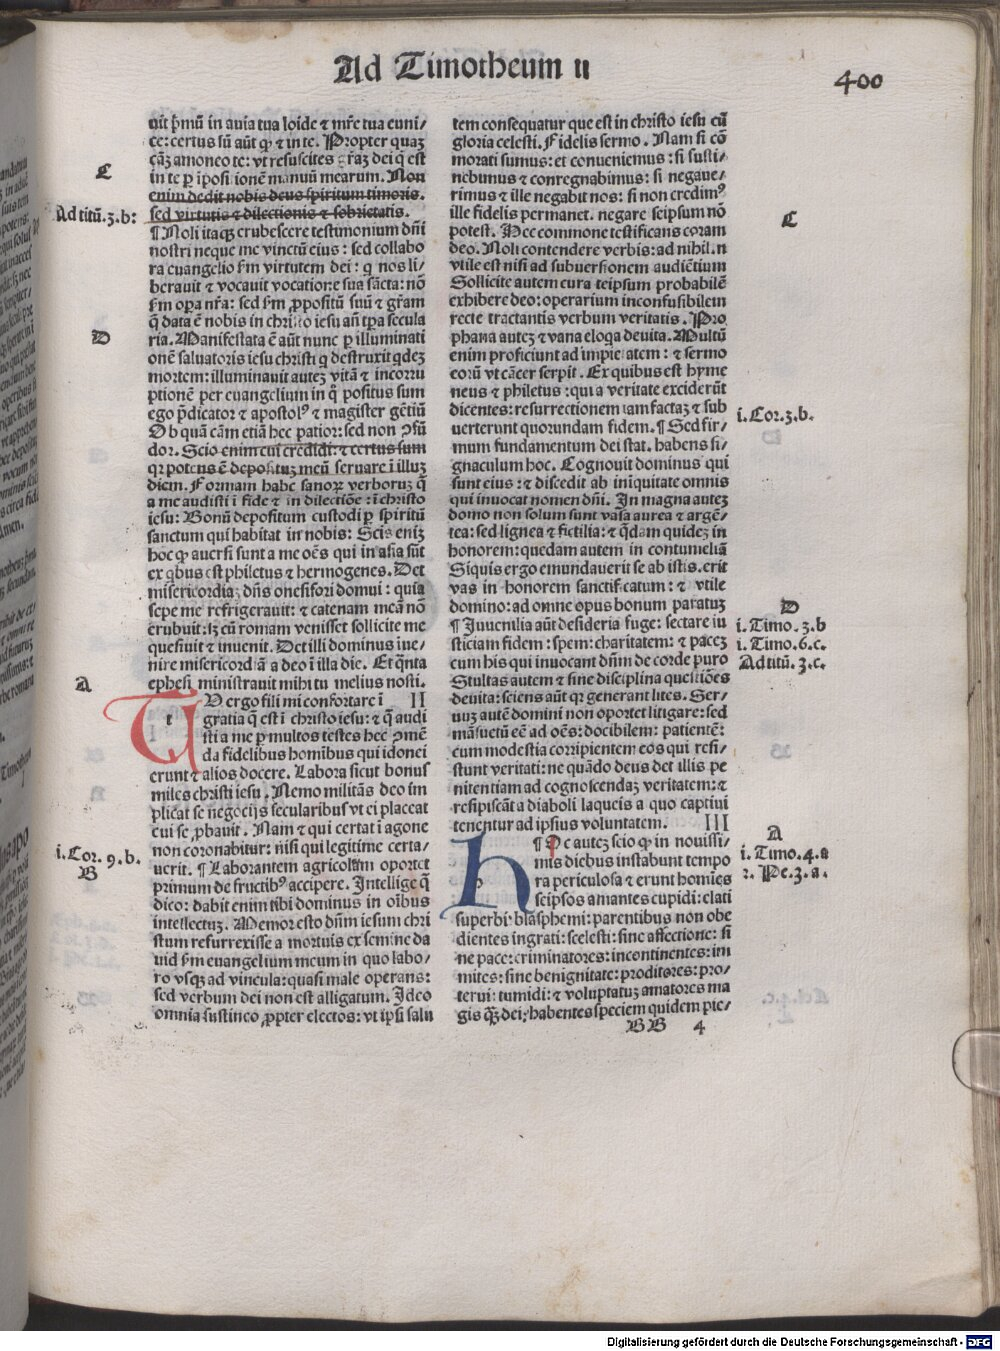 Ad Timotheum ii
400
C
Ad titū.3.b:
D
A
i.Cor.9.b.
B
uit p̄mū in auia tua loide ⁊ mr̄e tua euni⸗
ce: certus sū aūt ꝙ ⁊ in te. Propter quaꝫ
cāꝫ amoneo te: vt resuscites gr̄aꝫ dei q̄ est
in te ꝑ īposi.ionē manuū mearum. Non
enim dedit nobis deus spiritum timoris.
sed virtutis ⁊ dilectionis ⁊ sobrietatis.
¶ Noli itaqꝫ erubescere testimonium dn̄i
nostri neque me vinctū eius: sed collabo
ra euangelio ẜm virtutem dei: q nos li⸗
berauit ⁊ vocauit vocatione sua sācta: nō
ẜm oꝑa nr̄a: sed ẜm ꝓpositū suū ⁊ gr̄am
q̄ data ē nobis in christo iesu an̄ tꝑa secula
ria. Manifestata ē aūt nunc ꝑ illuminati
onē saluatoris iesu christi q destruxit qdeꝫ
mortem: illuminauit auteꝫ vitā ⁊ incorru
ptionē per euangelium in q̊ positus sum
ego p̄dicator ⁊ apostolꝰ ⁊ magister gētiū
Ob quā cām etiā hec patior: sed non ꝯfū
dor. Scio enim cui credidi: ⁊ certus sum
qꝛ potens ē depositūꝫ meū seruare ī illuꝫ
diem. Formam habe sanoꝝ verboruꝫ q̄
a me audisti ī fide ⁊ in dilectiōe: ī christo
iesu: Bonū depositum custodi ꝑ spiritū
sanctum qui habitat in nobis: Scis eniꝫ
hoc ꝙ auersi sunt a me oēs qui in asia sūt
ex qbus est philetus ⁊ hermogenes. Det
misericordiaꝫ dn̄s onesifori domui: quia
sepe me refrigerauit: ⁊ catenam meā nō
erubuit: sꝫ cū romam venisset sollicite me
quesiuit ⁊ inuenit. Det illi dominus iue⸗
nire misericordiā a deo ī illa die. Et q̄nta
ephesi ministrauit mihi tu melius nosti.
TV ergo fili mi confortare ī II
t
gratia q̄ est ī christo iesu: ⁊ q̄ audi
sti a me ꝑ multos testes hec ꝯmē
da fidelibus homībus qui idonei
erunt ⁊ alios docere. Labora sicut bonus
miles christi iesu. Nemo militās deo im
plicat se negocijs secularibus vt ei placeat
cui se ꝓbauit. Nam ⁊ qui certat ī agone
non coronabitur: nisi qui legitime certa⸗
uerit. ¶ Laborantem agricolam oportet
primum de fructibꝰ accipere. Intellige q̄
dico: dabit enim tibi dominus in oībus
intellectuꝫ. Memor esto dn̄m iesum chri
stum resurrexisse a mortuis ex semine da
uid ẜm euangelium meum in quo labo⸗
ro vsqꝫ ad vincula: quasi male operans:
sed verbum dei non est alligatum. Ideo
omnia sustineo ꝓpter electos: vt ipsi salu
tem consequatur que est in christo iesu cū
gloria celesti. Fidelis sermo. Nam si cō
morati sumus: et conuiuemus: si susti⸗
nebimus ⁊ conregnabimus: si negaue⸗
rimus ⁊ ille negabit nos: si non credimꝰ
ille fidelis permanet. negare seipsum nō
potest. Hec commone testificans coram
deo. Noli contendere verbis: ad nihil.n
vtile est nisi ad subuersionem audiētium
Sollicite autem cura teipsum probabilē
exhibere deo: operarium inconfusibilem
recte tractantis verbum veritatis. Pro
phana auteꝫ ⁊ vana eloqa deuita. Multū
enim proficiunt ad impietatem: ⁊ sermo
eorū vt cācer serpit. Ex quibus est hyme
neus ⁊ philetus: qui a veritate exciderūt
dicentes: resurrectionem iam factaꝫ ⁊ sub
uerterunt quorundam fidem. ¶ Sed fir⸗
mum fundamentum dei stat. habens si⸗
gnaculum hoc. Cognouit dominus qui
sunt eius: ⁊ discedit ab iniquitate omnis
qui inuocat nomen dn̄i. In magna auteꝫ
domo non solum sunt vasa aurea ⁊ argē⸗
tea: sed lignea ⁊ fictilia: ⁊ q̄dam quideꝫ in
honorem: quedam autem in contumeliā
Siquis ergo emundauerit se ab istis. erit
vas in honorem sanctificatum: ⁊ vtile
domino: ad omne opus bonum paratuꝫ
¶ Iuuenilia aūt desideria fuge: sectare iu
sticiam fidem: spem: charitatem: ⁊ paceꝫ
cum his qui inuocant dn̄m de corde puro
Stultas autem ⁊ sine disciplina questiōes
deuita: sciens aūt qꝛ generant lites. Ser⸗
uuꝫ autē domini non oportet litigare: sed
māsuetū eē ad oēs: docibilem: patientē:
cum modestia corripientem eos qui resi⸗
stunt veritati: ne quādo deus det illis pe
nitentiam ad cognoscendaꝫ veritatem: ⁊
resipiscāt a diaboli laqueis a quo captiui
tenentur ad ipsius voluntatem. III
h
¶ Oc auteꝫ scio ꝙ in nouissi⸗
mis diebus instabunt tempo
ra periculosa ⁊ erunt homīes
seipsos amantes cupidi: elati
superbi: blasphemi: parentibus non obe
dientes ingrati: scelesti: sine affectione: si
ne pace: criminatores: incontinentes: im
mites: sine benignitate: proditores: pro⸗
terui: tumidi: ⁊ voluptatuꝫ amatores ma
gis qꝫ dei: habentes speciem quidem pie⸗
BB 4
C
i.Cor.3.b.
D
i.Timo.3.b
i.Timo.6.c.
Ad titū.3.c.
A
i.Timo.4.a
2.Pe.3.a.
Digitalisierung gefördert durch die Deutsche Forschungsgemeinschaft - DFG